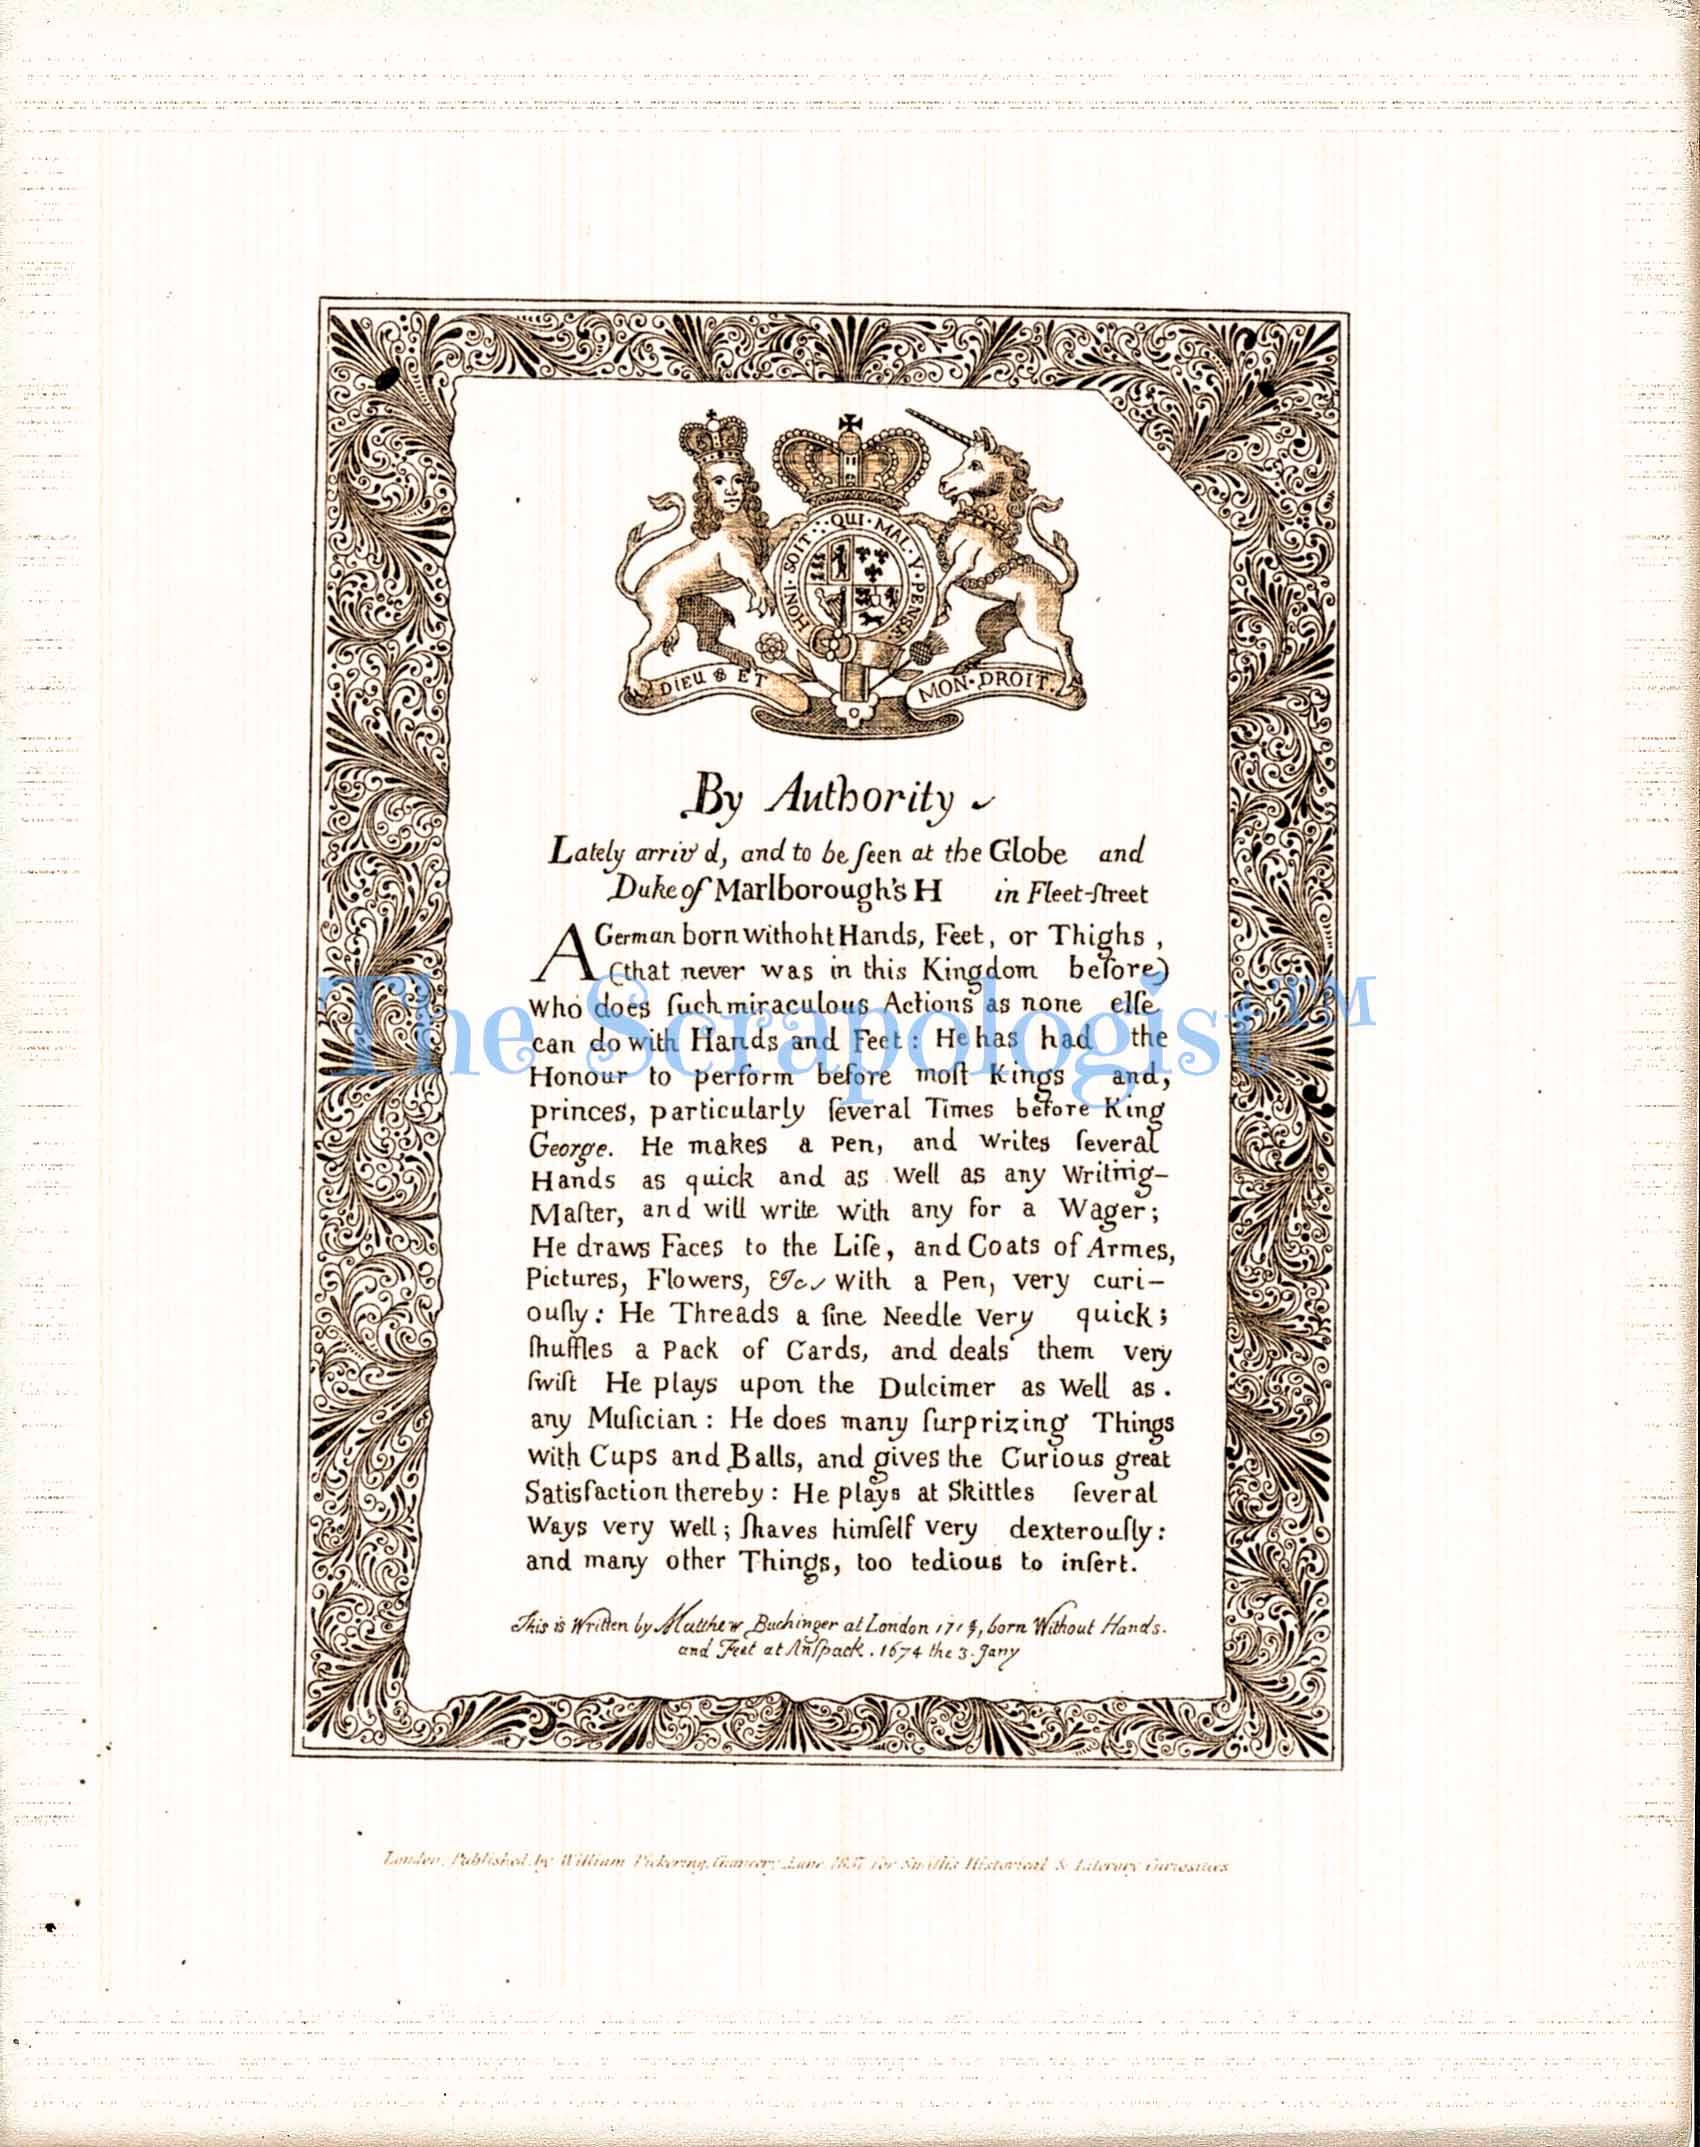 HONI · SOIT · QUI · MAL · Y · PENSE
DIEU & ET
MON · DROIT.
By Authority
Lately arriv'd, and to be ſeen at the Globe and
Duke of Marlborough's H in Fleet-ſtreet
A German born withoht Hands, Feet, or Thighs,
(that never was in this Kingdom before)
who does ſuch miraculous Actions as none elſe
can do with Hands and Feet: He has had the
Honour to perform before moſt Kings and,
princes, particularly ſeveral Times before King
George. He makes a Pen, and writes ſeveral
Hands as quick and as well as any Writing-
Maſter, and will write with any for a Wager;
He draws Faces to the Life, and Coats of Armes,
Pictures, Flowers, &c with a Pen, very curi-
ouſly: He Threads a fine Needle very quick;
ſhuffles a Pack of Cards, and deals them very
ſwift He plays upon the Dulcimer as well as.
any Muſician: He does many ſurprizing Things
with Cups and Balls, and gives the Curious great
Satisfaction thereby: He plays at Skittles ſeveral
Ways very well; ſhaves himſelf very dexterouſly:
and many other Things, too tedious to inſert.
This is Written by Matthew Buchinger at London, born Without Hands.
and Feet at Anſpack. 1674 the 3. Jany
London, Published by William Pickering, Chancery Lane 1837 for Smith's Historical & Literary Curiosities
The Scrapologist™